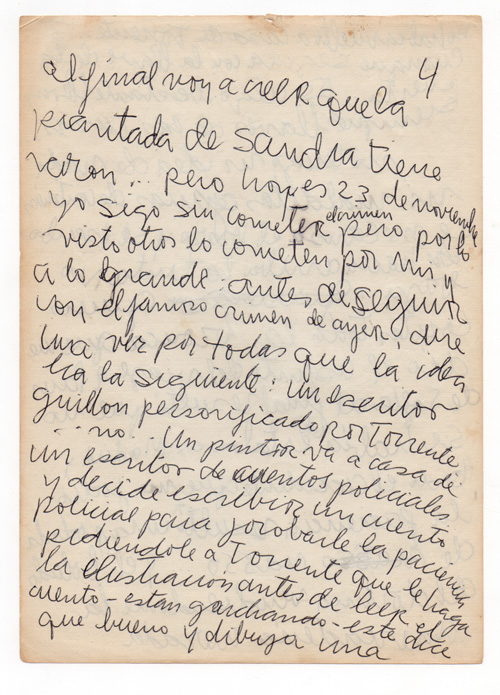 4
al final voy a creer que la
piantada de Sandra tiene
razon... pero hoy es 23 de noviembre
yo sigo sin cometer el crimen pero por lo
visto otros lo cometen por mi, y
a lo grande. antes de seguir
con el famoso crimen de ayer, dire
una vez por todas que la idea
era la siguiente: un escritor
guillon personificado por Torrente
... no... un pintor va a casa de
un escritor de cuentos policiales
y decide escribir un cuento
policial para jorobarle la paciencia
pidiendole a Torrente que le haga
la ilustracion antes de leer el
cuento - estan garchando - este dice
que bueno y dibuja una